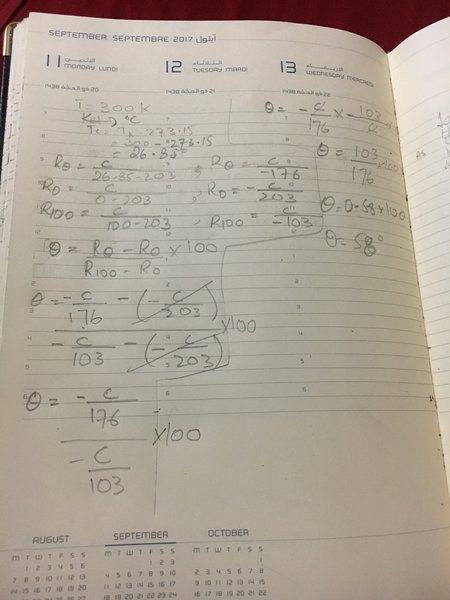 SEPTEMBER SEPTEMBRE 2017 أيلول
11 الاثنين
MONDAY LUNDI
12 الثلاثاء
TUESDAY MARDI
13 الاربعاء
WEDNESDAY MERCREDI
20 ذو الحجة 1438
21 ذو الحجة 1438
22 ذو الحجة 1438
T = 300 K
K → °C
Tc = Tk - 273.15
= 300 - 273.15
= 26.85°
Rθ = c / 26.85-203 , Rθ = c / -176
R0 = c / 0-203 , R0 = - c / 203
R100 = c / 100-203 , R100 = c / -103
θ = Rθ - R0 / R100 - R0 × 100
θ = - c / 176 - (- c / 203)
- c / 103 - (- c / 203) × 100
θ = - c / 176
- c / 103 × 100
θ = - c / 176 × - 103 / c
θ = 103 / 176 × 100
θ = 0.58 × 100
θ = 58°
AUGUST
M T W T F S S
1 2 3 4 5 6
7 8 9 10 11 12 13
14 15 16 17 18 19 20
SEPTEMBER
M T W T F S S
1 2 3
4 5 6 7 8 9 10
11 12 13 14 15 16 17
18 19 20 21 22 23 24
OCTOBER
M T W T F S S
1
2 3 4 5 6 7 8
9 10 11 12 13 14 15
16 17 18 19 20 21 22